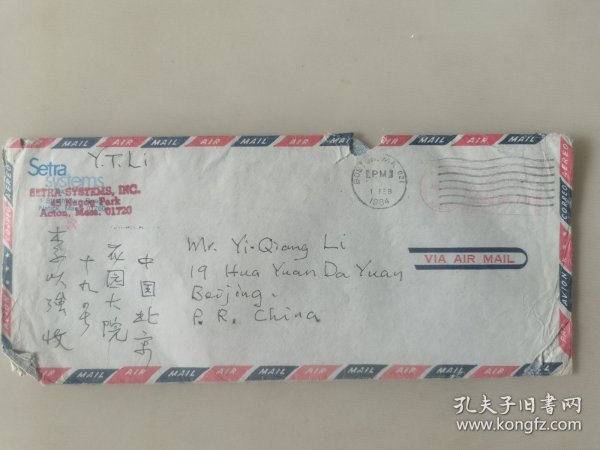 MAIL AIR MAIL AIR MAIL AIR MAIL
Y.T.Li
Setra
systems
SETRA SYSTEMS, INC.
45 Nagog Park
Acton, Mass. 01720
BOSTON, MA 021
PM
1 FEB
1984
VIA AIR MAIL
Mr. Yi-Qiang Li
19 Hua Yuan Da Yuan
Beijing.
P. R. China
中国北京
花园大院
十九号
李以强收
CORREO AEREO
PAR AVION
AIR MAIL AIR MAIL AIR MAIL AIR MAIL
孔夫子旧书网
www.kongfz.com